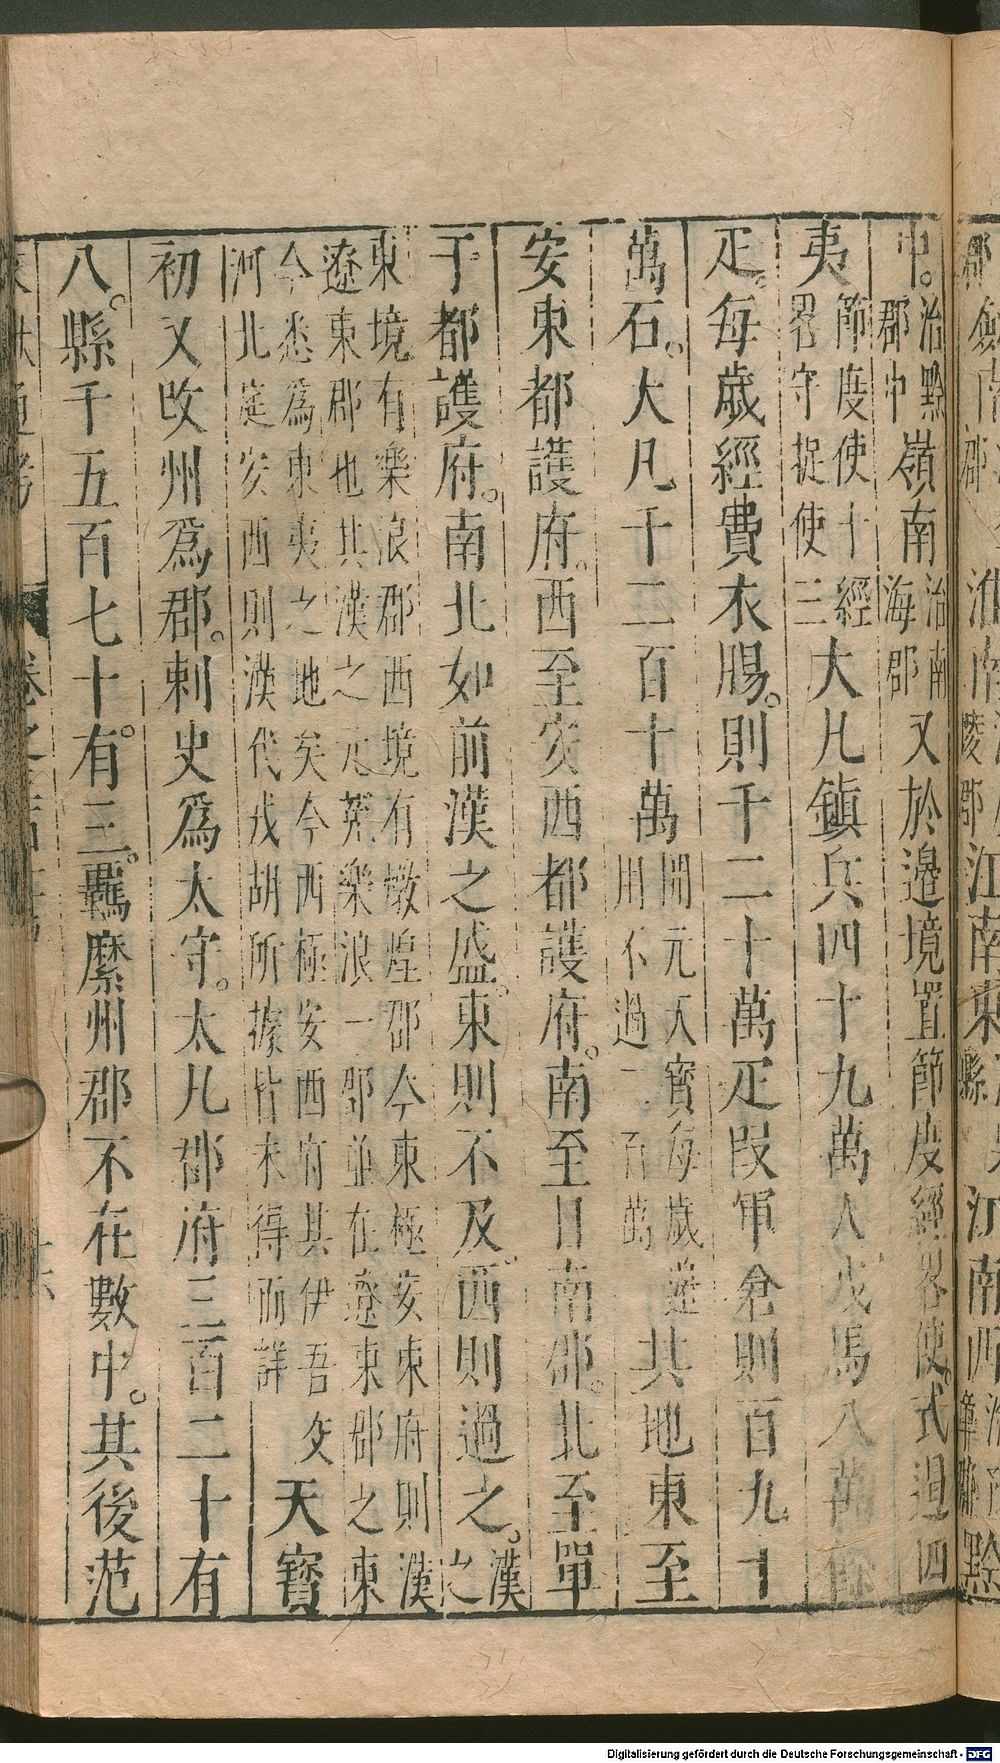 中。治黔郡中嶺南治南海郡又於邊境置節度經畧使。式遏四
夷節度使十經畧守捉使三大凡鎮兵四十九萬人戎馬八萬餘
疋。每歲經費衣賜。則千二十萬疋段軍倉則百九十
萬石。大凡千二百一十萬開元天寶每歲邊用不過二百萬其地東至
安東都護府。西至安西都護府。南至日南郡。北至單
于都護府。南北如前漢之盛。東則不及。西則過之。漢之
東境有樂浪郡西境有墩煌郡今東極安東府則漢
遼東郡也其漢之元菟樂浪二郡並在遼東郡之東
今悉為東夷之地矣今西極安西府其伊吾交
河北庭安西則漢代戎胡所據皆未得而詳
天寶
初又改州爲郡。刺史爲太守。太凡郡府三百二十有
八。縣千五百七十有。三。羈縻州郡不在數中。其後范